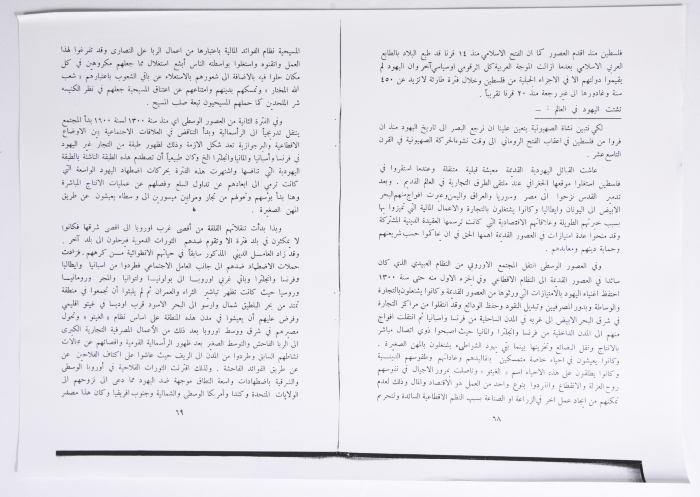 فلسطين منذ اقدم العصور كما ان الفتح الاسلامي منذ ١٤ قرنا قد طبع البلاد بالطابع
العربي الاسلامي بعدما ازالت الموجة العربية كل اثر قومي او سياسي آخر وان اليهود لم
يقيموا دولتهم الا في الاجزاء الجبلية من فلسطين وخلال فترة طارئة لا تزيد عن ٤٥٠
سنة وغادروها الى غير رجعة منذ ٢٠ قرنا تقريباً .
تشتت اليهود في العالم : ـ
لكي نتبين نشأة الصهيونية يتعين علينا ان نرجع البصر الى تاريخ اليهود منذ ان
فروا من فلسطين في اعقاب الفتح الروماني الى وقت نشوء الحركة الصهيونية في القرن
التاسع عشر .
عاشت القبائل اليهودية القديمة معيشة قبلية متنقلة وعندما استقروا في
فلسطين استغلوا موقعها الجغرافي عند ملتقى الطرق التجارية في العالم القديم . وبعد
تدمير القدس نزحوا الى مصر وسوريا والعراق واليمن وعبرت افواج منهم البحر
الابيض الى اليونان وايطاليا وكانوا يشتغلون بالتجارة والاعمال المالية التي تميزوا بها
بسبب خبرتهم الطويلة وعلاقاتهم الاقتصادية التي كانت ترسمها العقيدة الدينية المشتركة
وقد منحوا عدة امتيازات في العصور القديمة اهمها الحق في ان يحاكموا حسب شريعتهم
وحماية دينهم ومعابدهم .
وفي العصور الوسطى انتقل المجتمع الاوروبي من النظام العبيدي الذي كان
سائدا في العصور القديمة الى النظام الاقطاعي وفي الجزء الاول منه حتى سنة ١٣٠٠
احتفظ اغنياء اليهود بالامتيازات التي ورثوها من العصور القديمة وكانوا يشتغلون بالتجارة
والوساطة وبدور المصرفيين وتبديل النقود وحفظ الودائع وقد انتقلوا من مراكز التجارة
في شرق البحر الابيض الى غربه في المدن الساحلية من فرنسا واسبانيا ثم انتقلت افواج
منهم الى المدن الداخلية من فرنسا وانجلترا والمانيا حيث اصبحوا ذوي اتصال مباشر
بالانتاج ونقل البضائع وتخزينها بينما بقي يهود الشرق يشتغلون بالمهن الصغيرة .
وكانوا يعيشون في احياء خاصة متمسكين بتقاليدهم وعاداتهم وطقوسهم الدينية
وكانوا يطلقون على هذه الاحياء اسم « الغيتو » وتأصلت بمرور الاجيال في نفوسهم
روح العزلة والانقطاع وانفردوا بنوع واحد من العمل هو الاقتصاد والمال وذلك لعدم
تمكنهم من ايجاد عمل آخر في الزراعة او الصناعة بسبب النظم الاقطاعية السائدة ولتحريم
٦٨
المسيحية نظام الفوائد المالية باعتبارها من اعمال الربا على النصارى وقد تفرغوا لهذا
العمل واتقنوه واستغلوا بواسطته الناس أبشع استغلال مما جعلهم مكروهين في كل
مكان حلوا فيه بالاضافة الى شعورهم بالاستعلاء عن باقي الشعوب باعتبارهم « شعب
الله المختار » وتمسكهم بدينهم وامتناعهم عن اعتناق المسيحية جعلهم في نظر الكنيسة
شر الملحدين كما حملهم المسيحيون تبعة صلب المسيح .
وفي الفترة الثانية من العصور الوسطى اي منذ سنة ١٣٠٠ لسنة ١٦٠٠ بدأ المجتمع
ينتقل تدريجياً الى الرأسمالية وبدأ التناقض في العلاقات الاجتماعية بين الاوضاع
الاقطاعية والبرجوازية تعد شكل الازمة وذلك لظهور طبقة من التجار غير اليهود
في فرنسا وأسبانيا والمانيا وانجلترا الخ وكان طبيعياً أن تصطدم هذه الطبقة الناشئة بالطبقة
اليهودية التي تنافسها واشتهرت هذه الفترة بحركات اضطهاد اليهود الواسعة التي
كانت ترمي الى ابعادهم عن تداول السلع وفصلهم عن عمليات الانتاج المباشرة
وهنا بدأ بؤسهم وتحولهم من تجار ومرابين ميسورين الى وسطاء يعيشون عن طريق
المهن الصغيرة .
وبدأت تنقلاتهم القلقة من أقصى غرب اوروبا الى اقصى شرقها فكانوا
لا يمكثون في بلد فترة الا وتقوم ضدهم الثورات الدموية فيرحلون الى بلد آخر .
وقد زاد العامل الديني المذكور سابقاً في حياتهم الانطوائية من كرههم . فزادت
حملات الاضطهاد ضدهم الى جانب العامل الاجتماعي فطردوا من اسبانيا وايطاليا
وفرنسا وانجلترا وباقي غربي اوروبا الى بولونيا ولتوانيا والمجر ورومانيا
وروسيا حيث كانت تظهر تباشير الثراء والعمران ثم لم يلبثوا أن تجمعوا في منطقة
تمتد من بحر البلطيق شمالا وارسو الى البحر الاسود قرب اوديسا في غيتو اقليمي
وفرض عليهم أن يعيشوا في مدن هذه المنطقة على اساس نظام « الغيتو » وتحول
مصيرهم في شرق ووسط اوروبا بعد ذلك من الأعمال المصرفية التجارية الكبرى
الى الربا الفاحش والتوسط الصغير بعد ظهور الرأسمالية القومية واقصائهم عن مجالات
نشاطهم السابق وطردوا من المدن الى الريف حيث عاشوا على اكتاف الفلاحين عن
طريق الفوائد الفاحشة . ولذلك اقترنت الثورات الفلاحية في أوروبا الوسطى
والشرقية باضطهادات واسعة النطاق موجهة ضد اليهود مما دعى الى نزوحهم الى
الولايات المتحدة وكندا وأمريكا الوسطى والشمالية وجنوب افريقيا وكان هذا مصدر
٦٩